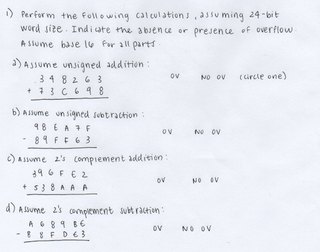 1) Perform the following calculations, assuming 24-bit
word size. Indicate the absence or presence of overflow.
Assume base 16 for all parts
a) Assume unsigned addition:
3 4 8 2 6 3 OV NO OV (circle one)
+ 7 3 C 6 9 8
b) Assume unsigned subtraction:
9 8 E A 7 F OV NO OV
- 8 9 F F 6 3
c) Assume 2's complement addition:
3 9 6 F E 2 OV NO OV
+ 5 3 8 A A A
d) Assume 2's complement subtraction:
A 6 8 9 B E OV NO OV
- 8 8 F D E 3